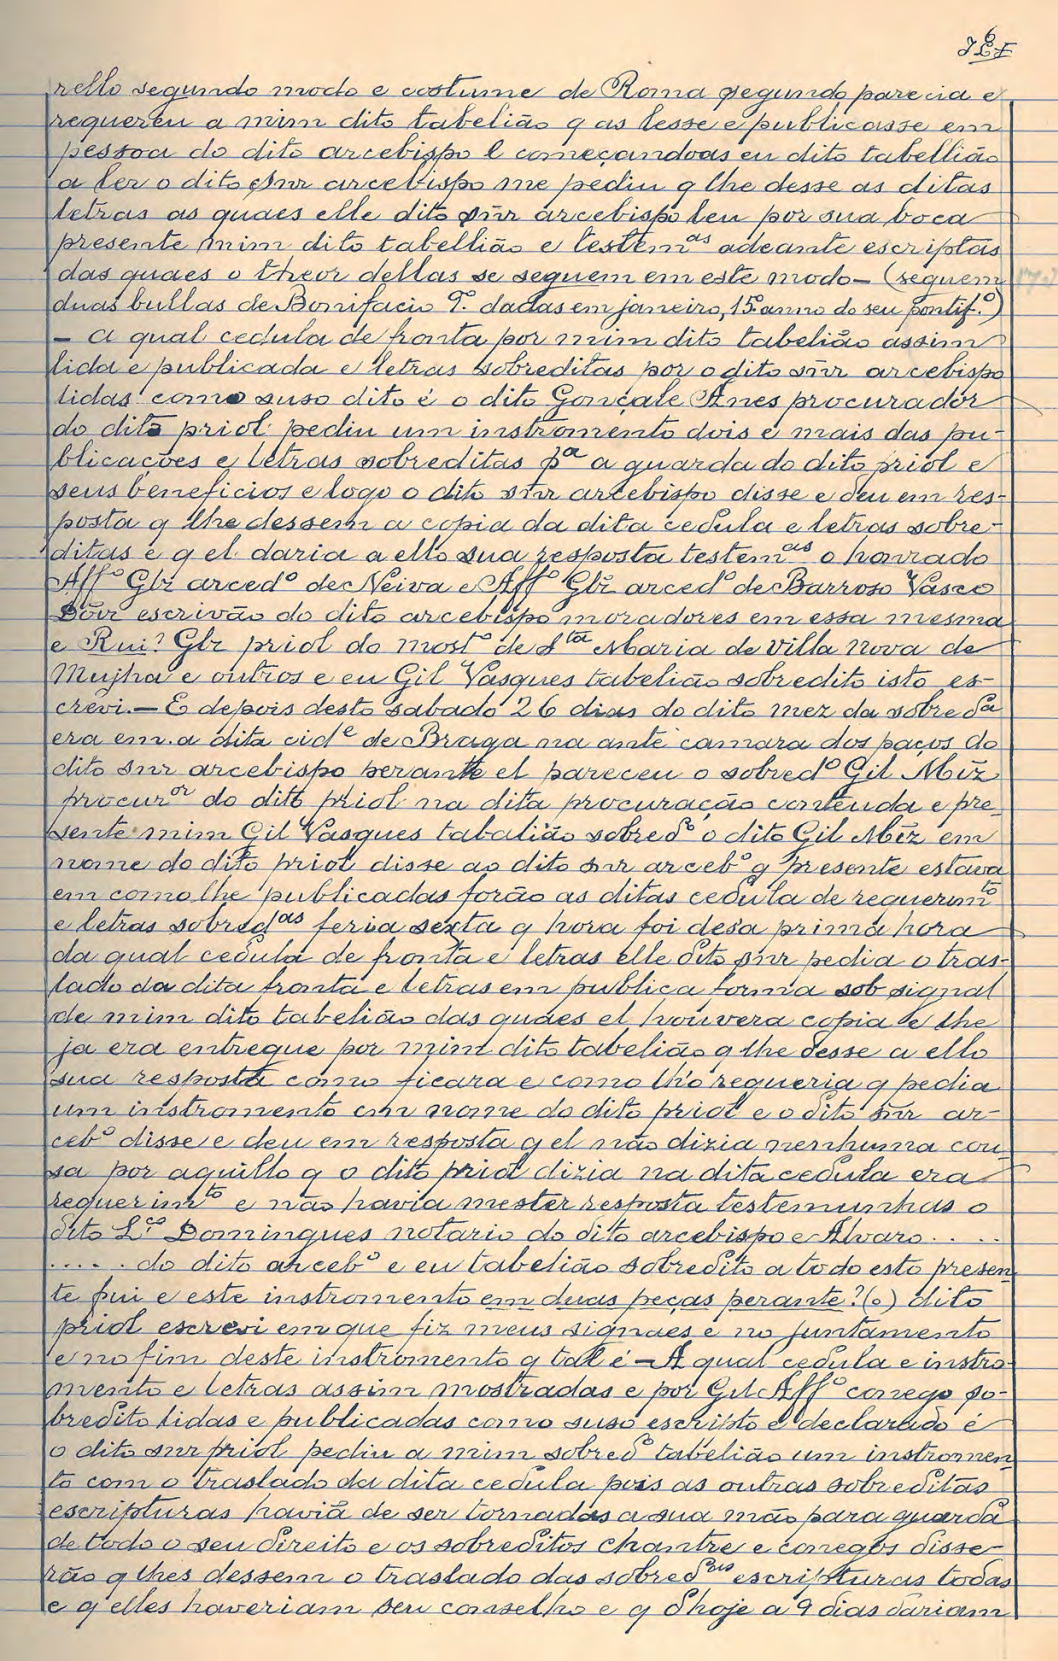 6
rello segundo modo e costume de Roma segundo parecia e
requereu a mim dito tabelião q as lesse e publicasse em
pessoa do dito arcebispo e começandoas eu dito tabellião
a ler o dito snr arcebispo me pediu q lhe desse as ditas
letras as quaes elle dito snr arcebispo leu por sua boca
presente mim dito tabellião e testemas adeante escriptas
das quaes o theor dellas se seguem em este modo – (seguem
duas bullas de Bonifacio 9.º dadas em janeiro, 15º anno do seu pontif.º)
– A qual cedula de fronta por mim dito tabelião assim
lida e publicada e letras sobreditas por o dito snr arcebispo
lidas como suso dito é o dito Gonçale Anes procurador
do dito priol pediu um instromento dois e mais das pu-
blicações e letras sobreditas pa a guarda do dito priol e
seus beneficios e logo o dito snr arcebispo disse e deu em res-
posta q lhe dessem a copia da dita cedula e letras sobre-
ditas e q el daria a ello sua resposta testemas o honrado
Affº Glz arcedº de Neiva e Affº Glz arcedº de Barroso Vasco
escrivão do dito arcebispo moradores em essa mesma
e Rui? Glz priol do mostº de Sta Maria de Villa Nova de
Mujha e outros e eu Gil Vasques tabelião sobredito isto es-
crevi. – E depois desto sabado 26 dias do dito mez da sobreda
era em a dita cide de Braga na ante camara dos paços do
dito snr arcebispo perante el pareceu o sobredº Gil Miz
procuror do dito priol na dita procuração contenda e pre-
sente mim Gil Vasques tabalião sobredº o dito Gil Miz em
nome do dito priol disse ao dito snr arcebº q presente estava
em como lhe publicadas forão as ditas cedula de requerimto
e letras sobredas feria sexta q hora foi desa prima hora
da qual cedula de fronta e letras elle dito snr pedia o tras-
lado da dita fronta e letras em publica forma sob signal
de mim dito tabelião das quaes el houvera copia e lhe
ja era entregue por mim dito tabelião q lhe desse a ello
sua resposta como ficara e como lho requeria q pedia
um instromento em nome do dito priol e o dito snr ar-
cebº disse e deu em resposta q el não dizia nenhuma cou
sa por aquillo q o dito priol dizia na dita cedula era
requerimto e não havia mester resposta testemunhas o
dito Lço Domingues notario do dito arcebispo e Alvaro . . . .
. . . . . do dito arcebº e eu tabelião sobredito a todo esto presen
te fui e este instromento em duas peças perante? (o) dito
priol escrevi em que fiz meus signaes e no juntamento
e no fim deste instromento q tal é – A qual cedula e instro-
mento e letras assim mostradas e por Gil Affº conego so-
bredito lidas e publicadas como suso escripto e declarado é
o dito snr priol pediu a mim sobredº tabelião um instromen
to com o traslado da dita cedula pois as outras sobreditas
escripturas haviã de ser tornadas a sua mão para guarda
de todo o seu direito e os sobreditos chantre e conegos disse-
rão q lhes dessem o traslado das sobredas escripturas todas
e q elles haveriam seu conselho e q dhoje a 9 dias dariam